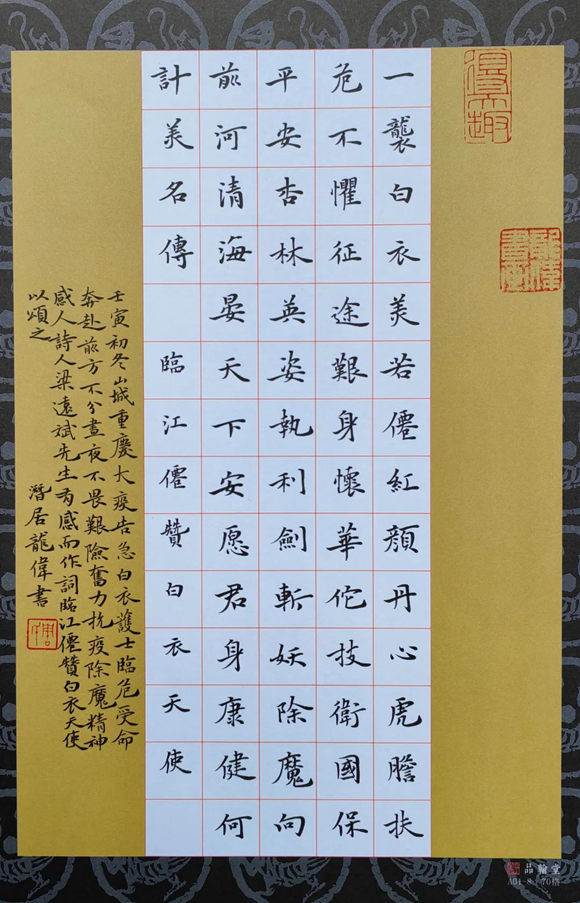 一襲白衣美若僊紅顏丹心虎膽扶
危不懼征途艱身懷華佗技衛國保
平安杏林英姿執利劍斬妖除魔向
前河清海晏天下安愿君身康健何
計美名傳 臨江僊贊白衣天使
壬寅初冬山城重慶大疫告急白衣護士臨危受命
奔赴前方不分晝夜不畏艱險奮力抗疫除魔精神
感人詩人梁遠斌先生有感而作詞臨江僊贊白衣天使
以頌之
潛居龍偉書
龍偉書畫
品翰堂